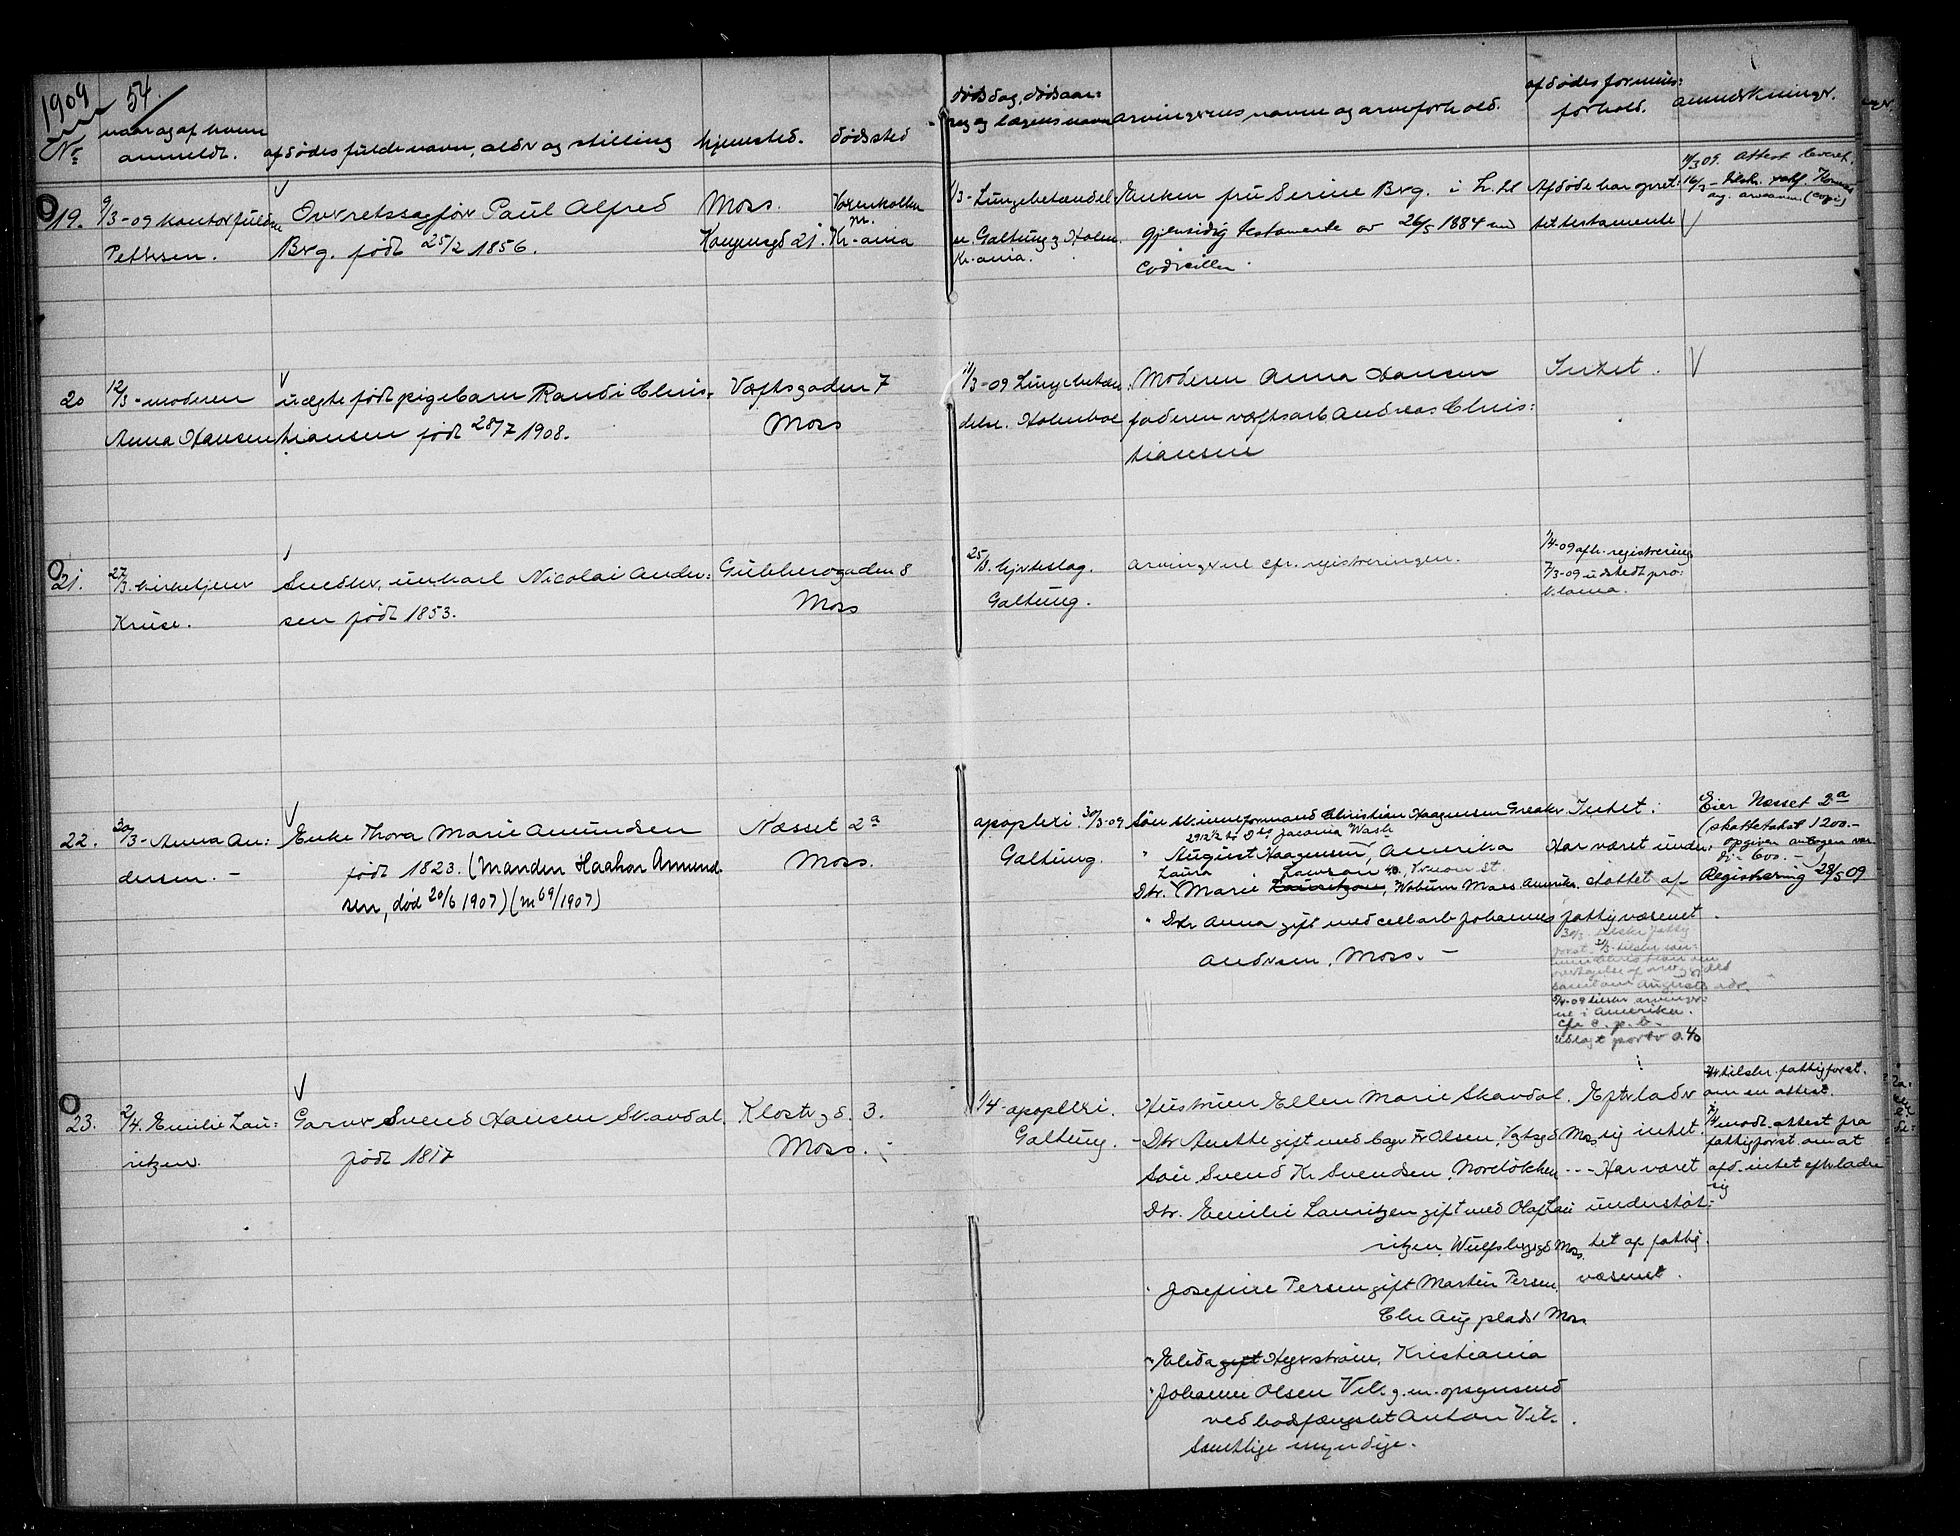 1909 54.
No
naar og af hvem
anmeldt.
afdødes fulde navn, alder og stilling
hjemsted.
dødsted
dødsdag, dødsaar=
sag og lægens navn
arvingernes navne og arveforhold.
afdødes formues=
forhold.
anmerkninger.
19.
9/3-09 kontorfuldm
Pettersen.
Overretssagfører Paul Alfred
Berg. født 25/2 1856.
Moss.
Kongensgd 21.
Kr-ania
1/3- Lungebetændel
se. Galtung, Holm.
Kr.ania.
Enken fru Serine Berg. i h. t.
gjensidig testamente av 26/5 1884 med
Codiciller.
Afdøde har opret=
tet testamente
11/3 09. Attest leveret.
20
12/3- moderen
Anna Hansen
uægte født pigebarn Randi Chris=
tiansen født 28/7 1908.
Værftsgaden 7
Moss
11/3-09 Lungebetæn
delse. Holmboe
Moderen Anna Hansen
faderen værftsarb. Andreas Chris=
tiansen
Intet.
21.
27/3. kirketjener
Kruse.
Snedker, unkarl Nicolai Ander=
sen født 1853.
Gubberogaden 8
Moss
25/3. hjerteslag.
Galtung.
arvingerne cfr. registreringen.
1/4-09 afh. registrering
7/3-09 udstedt pro=
klama.
22.
30/3- Anna An=
dersen. -
Enke Thora Marie Amundsen
født 1823. (Manden Haakon Amund-
sen, død 20/6 1907) (m 69/1907)
Næsset 2a
Moss.
apoplexi 30/3-09
Galtung.
Søn skinneformand Christian Haagensen Greaker
Tacoma Wash
" August Haagensen, Amerika
Laura Lawson 40. Vernon St.
Dtr. Marie Lauritzen, Woburn Mass Amerika.
" Dtr Anna gift med cellarb Johannes
Andersen, Moss. -
Intet.
Har været under=
støttet af
fattigvæsenet
5/4-09 tilskr arvinger=
ne i Amerika.
cfr c. p. b.
udlagt porto 0.40
Eier Næsset 2a
(skattetakst 1200.-
opgiven antagen vær
di- 600. -
Registrering 28/5 09
23.
2/4. Emilie Lau=
ritzen.
Garver Svend Hansen Skavdal.
født 1817
Klostergd. 3.
Moss.
1/4- apoplexi.
Galtung.
Hustruen Ellen Marie Skavdal.
- Dtr Anette gift med bager Fr Olsen, Vgtsgd Moss
Søn Svend Kr. Svendsen, Nordløkken - - -
Dtr. Emilie Lauritzen gift med Olaf Lau
ritzen, Wulfsbergsgd Moss.
" Josefine Persen gift Martin Persen,
Chr Aug plads 1 Moss
" Elida gift Hegerstrøm, Kristiania
" Johanne Olsen Vik g. m. opsynsmd
ved bodsfængslet Anton Vik.
Samtlige myndige.
Efterlader
sig intet.
Har været
understøt=
tet af fattig
væsenet.
2/4 tilskr. fattigforst.
om en attest.
7/4 modt. attest fra
fattigforst. om at
afd. intet efterlader
sig